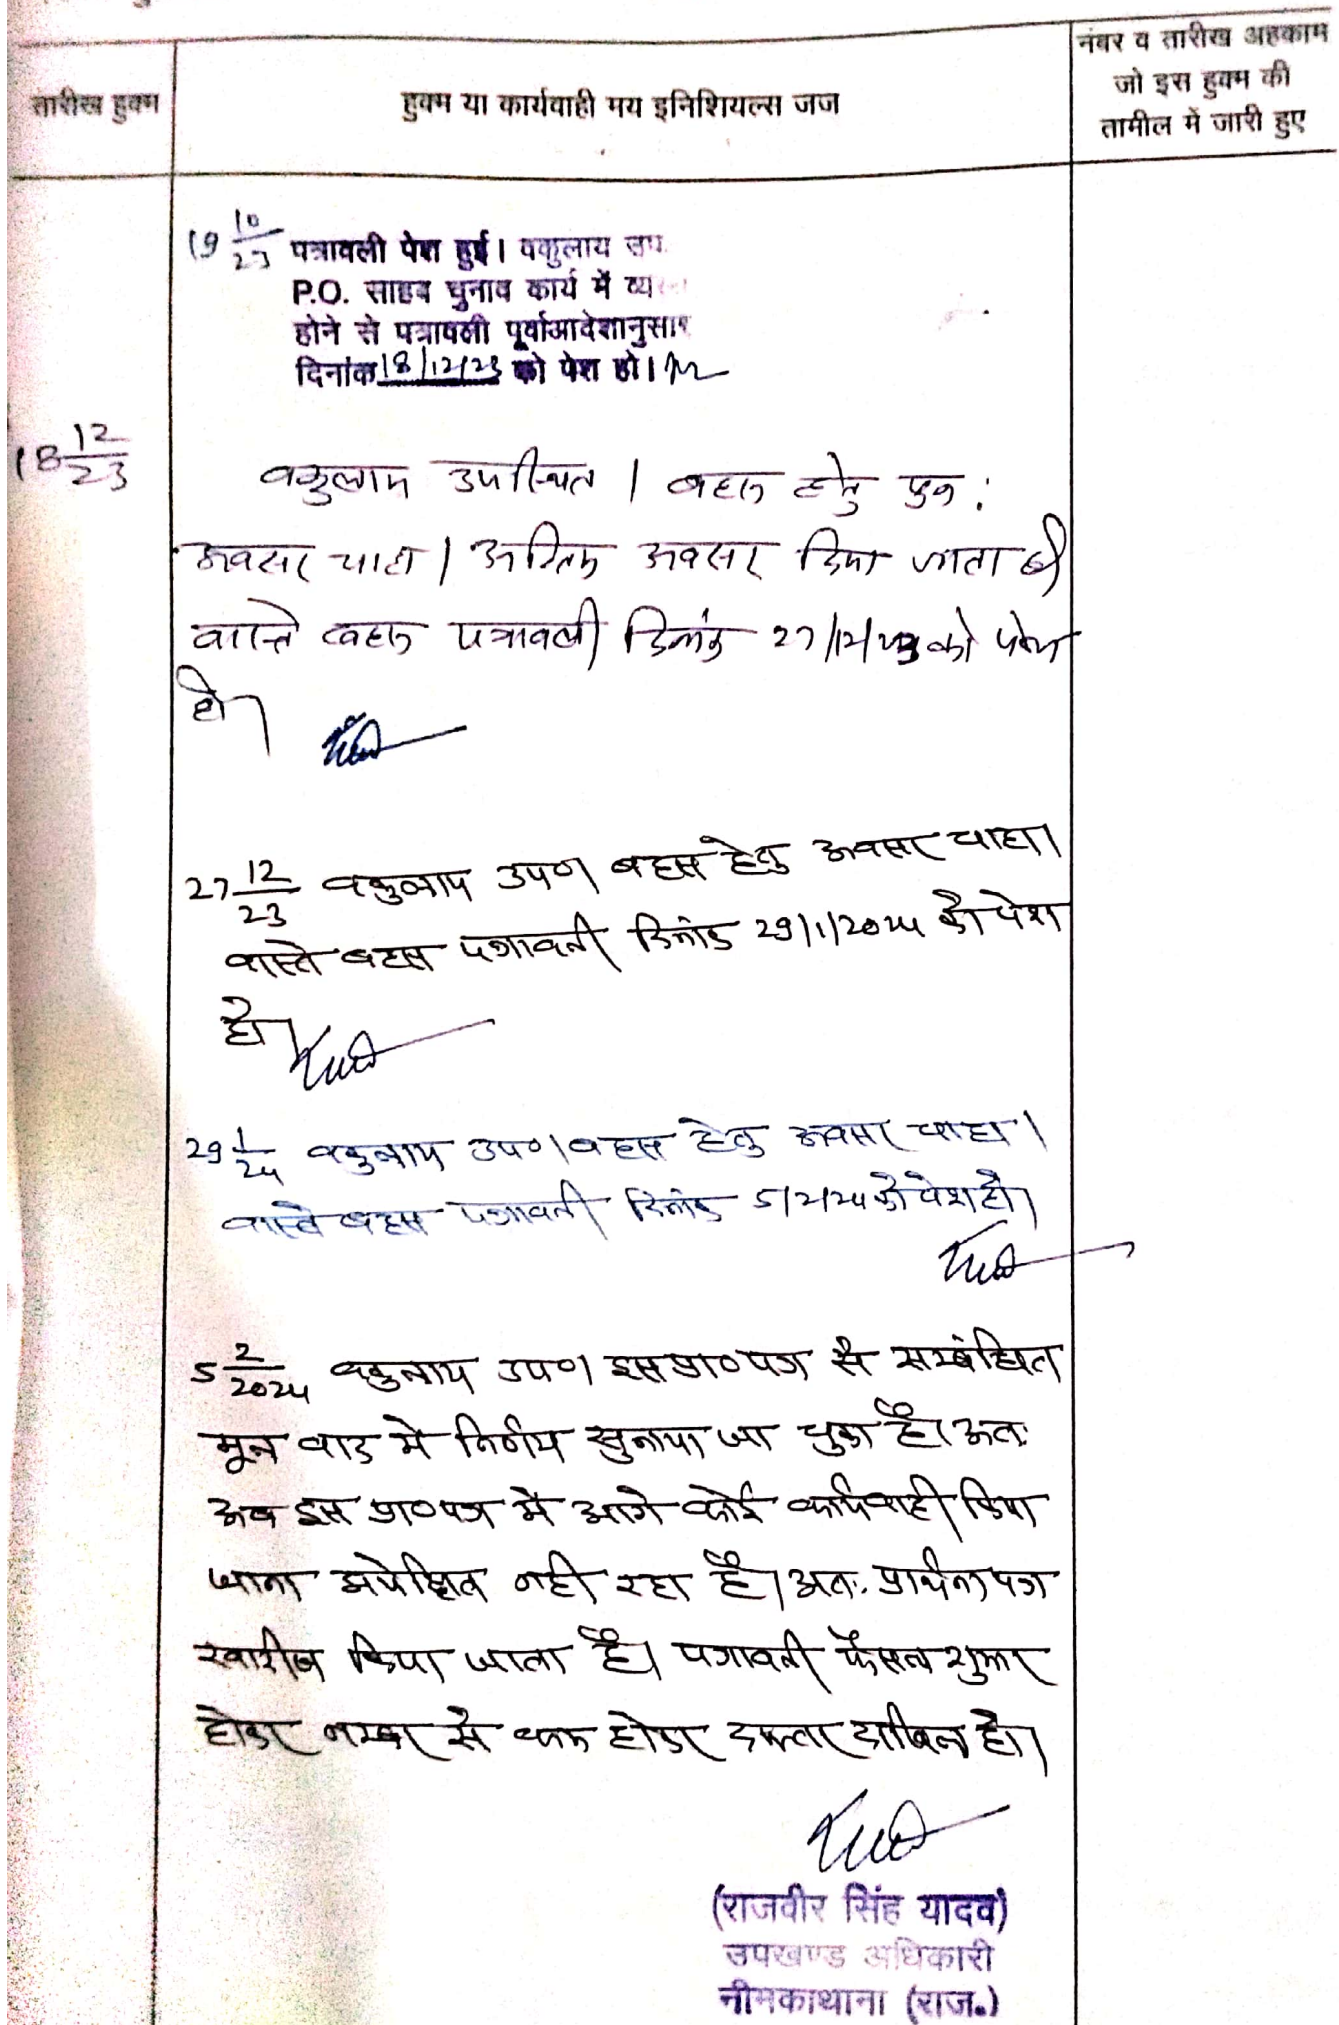 तारीख हुक्म
हुक्म या कार्यवाही मय इनिशियल्स जज
नंबर व तारीख अहकाम
जो इस हुक्म की
तामील में जारी हुए
19 10/23 पत्रावली पेश हुई। वकुलाय उप.
P.O. साहब चुनाव कार्य में व्यस्त
होने से पत्रावली पूर्वाआदेशानुसार
दिनांक 18/12/23 को पेश हो।
18 12/23
वकुलाय उपस्थित। बहस हेतु पुन:
अवसर चाहा। अन्तिम अवसर दिया जाता है।
वास्ते बहस पत्रावली दिनांक 27/12/23 को पेश
हो।
27 12/23 वकुलाय उप०। बहस हेतु अवसर चाहा।
वास्ते बहस पत्रावली दिनांक 29/1/2024 को पेश
हो।
29 1/24 वकुलाय उप०। बहस हेतु अवसर चाहा।
वास्ते बहस पत्रावली दिनांक 5/2/24 को पेश हो।
5 2/2024 वकुलाय उप०। इस प्रा०पत्र से सम्बंधित
मूल वाद में निर्णय सुनाया जा चुका है। अतः
अब इस प्रा०पत्र में आगे कोई कार्यवाही किया
जाना अपेक्षित नही रहा है। अतः प्रार्थना पत्र
खारीज किया जाता है। पत्रावली फैसल शुमार
होकर नम्बर से कम होकर दफ्तर दाखिल हो।
(राजवीर सिंह यादव)
उपखण्ड अधिकारी
नीमकाथाना (राज.)